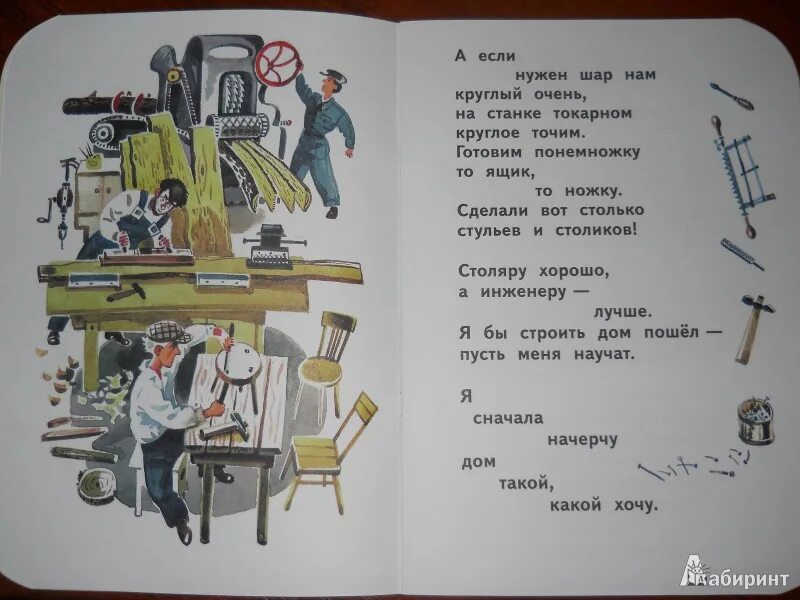 А если
нужен шар нам
круглый очень,
на станке токарном
круглое точим.
Готовим понемножку
то ящик,
то ножку.
Сделали вот столько
стульев и столиков!
Столяру хорошо,
а инженеру —
лучше.
Я бы строить дом пошёл —
пусть меня научат.
Я
сначала
начерчу
дом
такой,
какой хочу.
Лабиринт